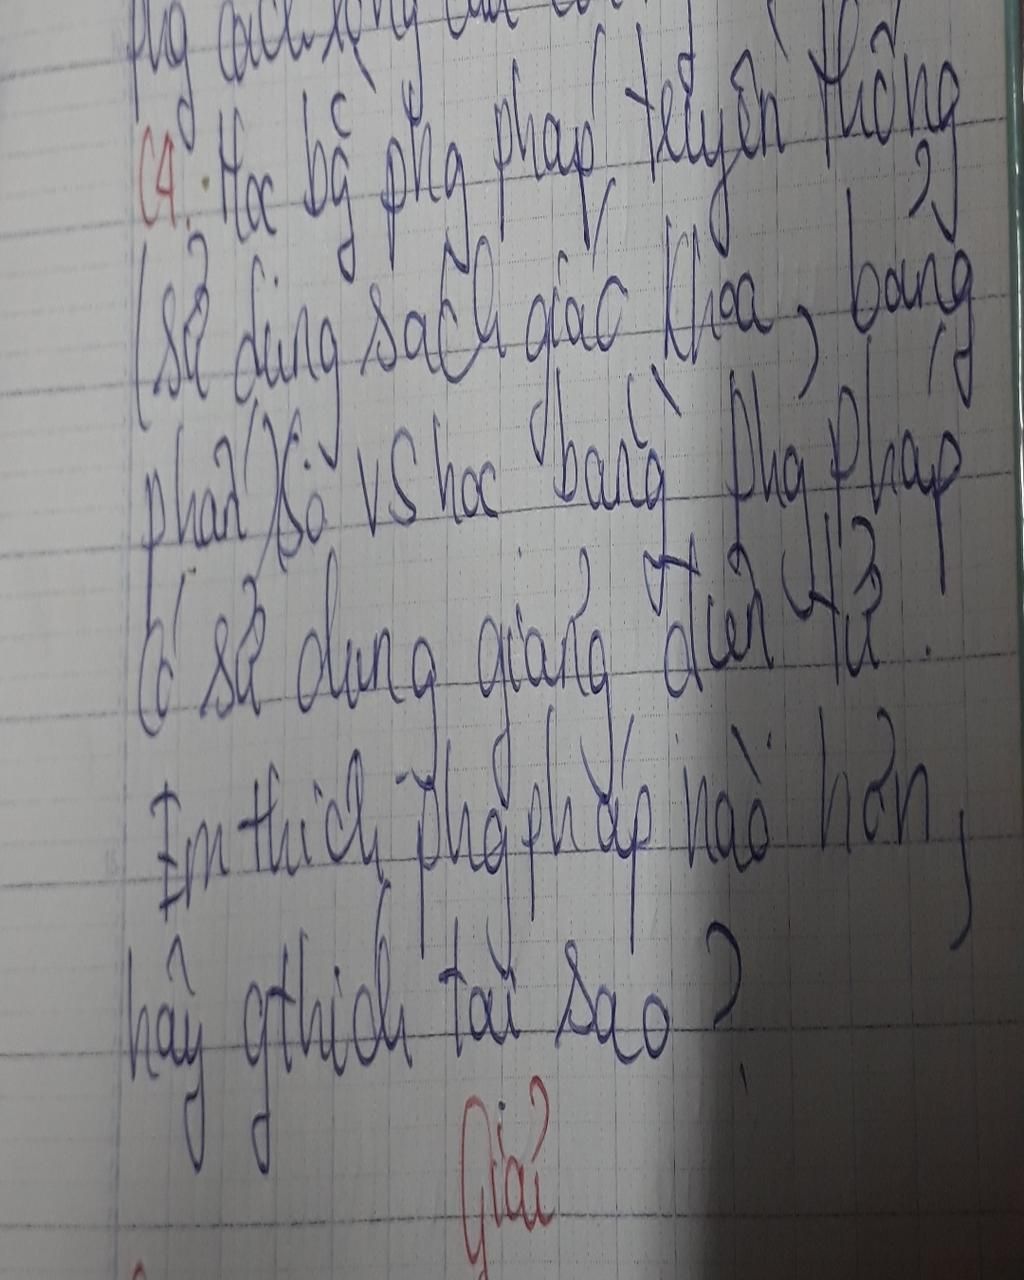 phg cách sống của
C4. Học bg phg pháp truyền thống
(sử dụng sách giáo khoa, bảng
phấn) so vs học bằng phg pháp
có sử dụng giảng điện tử.
Em thích phg pháp nào hơn,
hãy gthich tại sao?
Giải